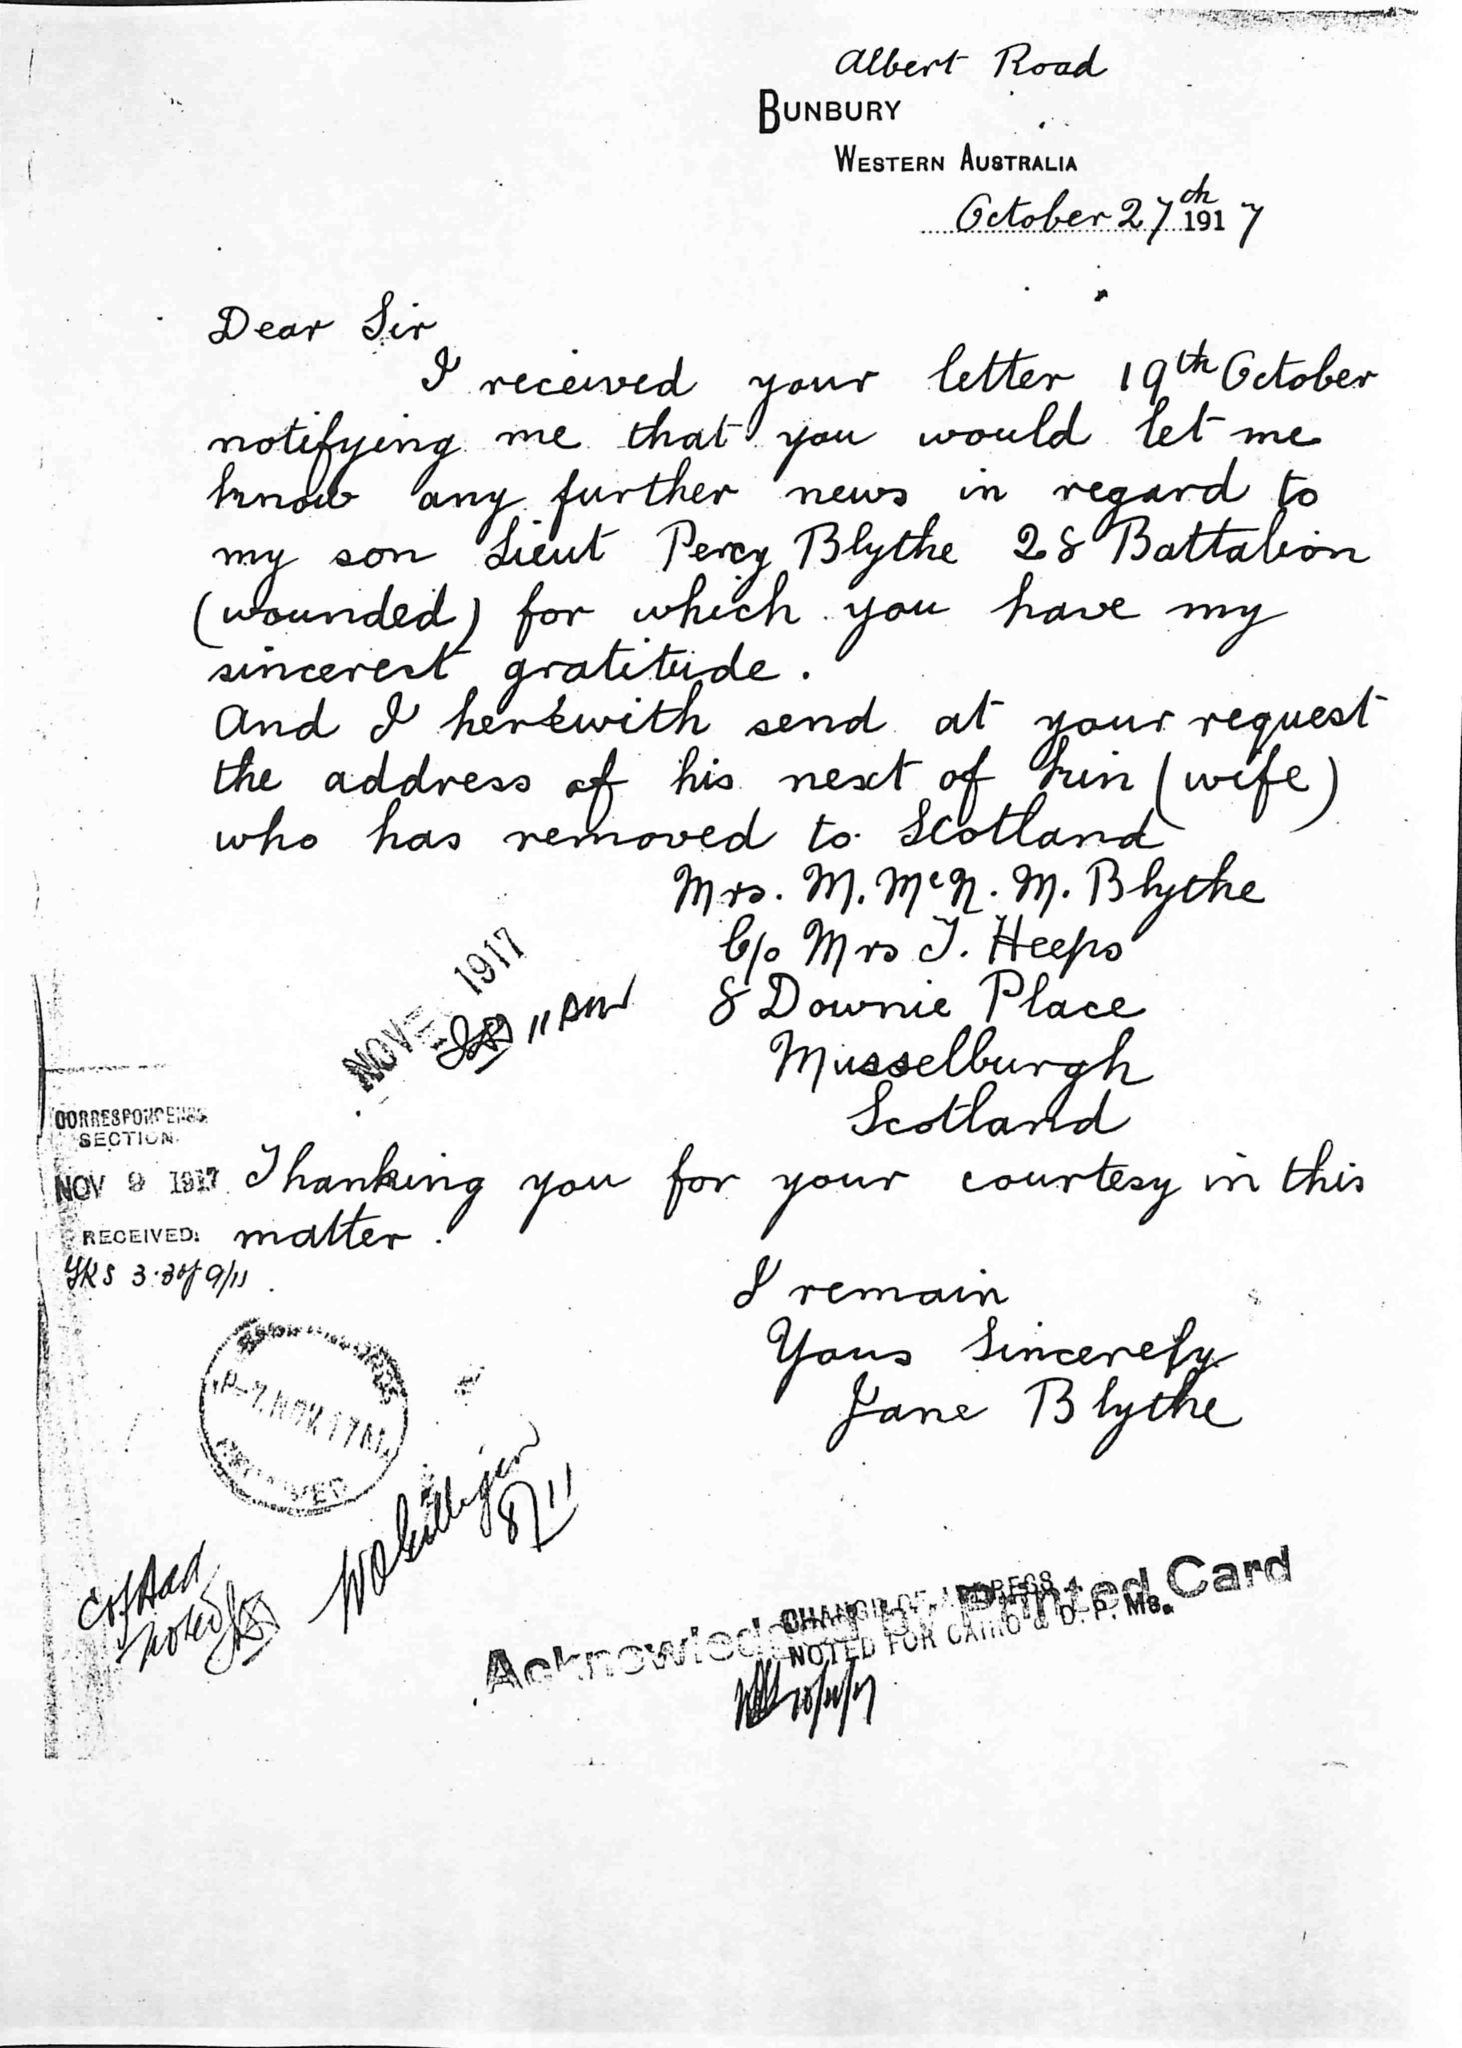 Albert Road
BUNBURY
WESTERN AUSTRALIA
October 27th 1917
Dear Sir
I received your letter 19th October
notifying me that you would let me
know any further news in regard to
my son Lieut Percy Blythe 28 Battalion
(wounded) for which you have my
sincerest gratitude.
And I herewith send at your request
the address of his next of kin (wife)
who has removed to Scotland
Mrs. M. McN. M. Blythe
C/o Mrs J. Heeps
8 Downie Place
Musselburgh
Scotland
NOV 1917
11 AM
CORRESPONDENCE
SECTION.
NOV 9 1917
RECEIVED:
9/11
Thanking you for your courtesy in this
matter.
I remain
Yous Sincerely
Jane Blythe
7. NOV. 17
RECEIVED
8/11
Noted
Acknowledged by Printed Card
CHANGE OF ADDRESS
NOTED FOR CAIRO & D. P. Ms.